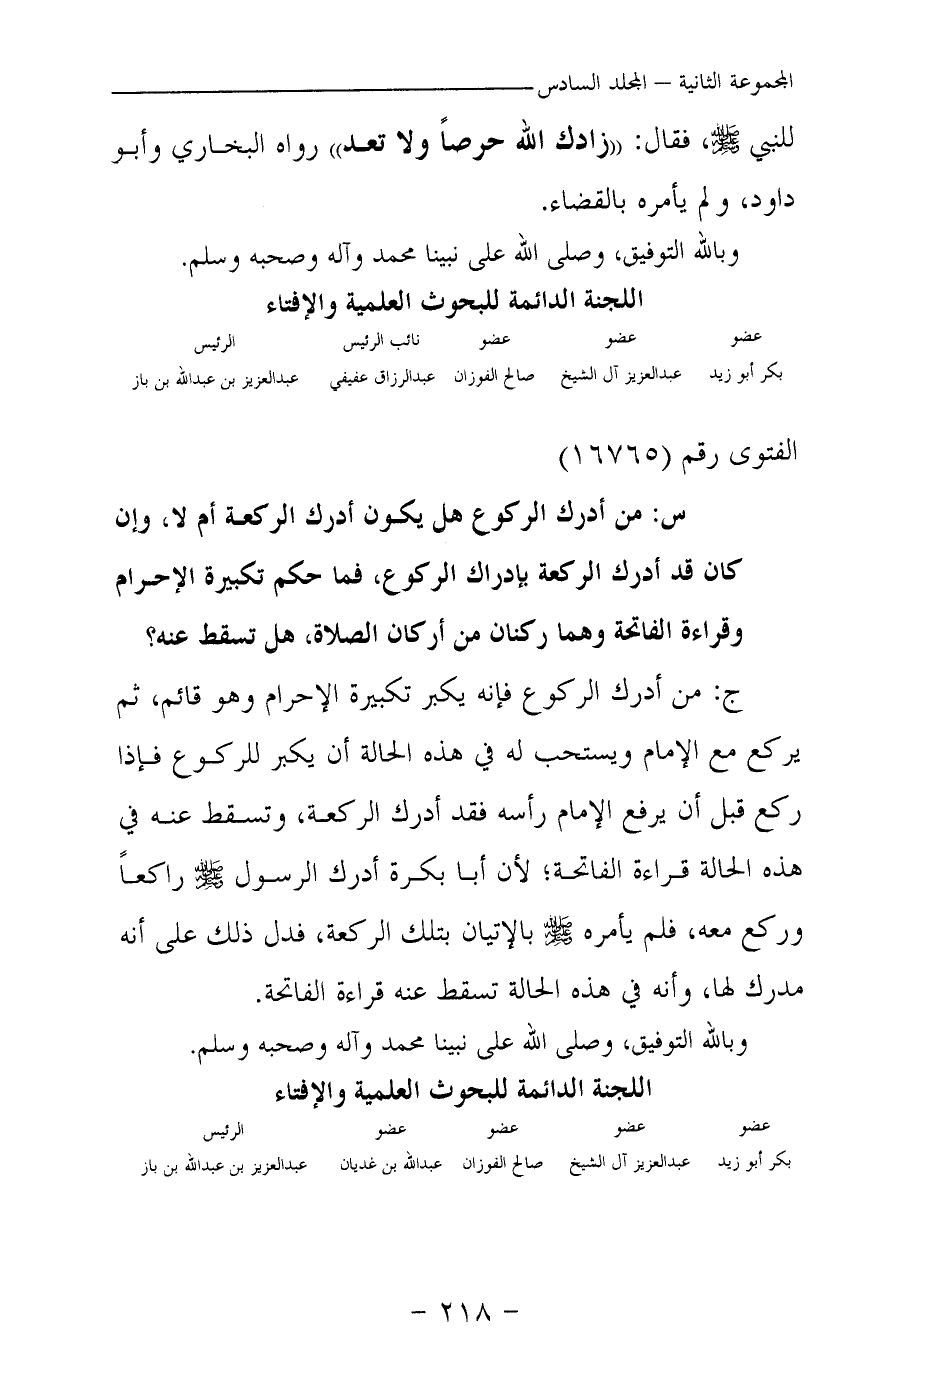 المجموعة الثانية – المجلد السادس
للنبي ﷺ، فقال: ((زادك الله حرصاً ولا تعد)) رواه البخاري وأبو
داود، ولم يأمره بالقضاء.
وبالله التوفيق، وصلى الله على نبينا محمد وآله وصحبه وسلم.
اللجنة الدائمة للبحوث العلمية والإفتاء
عضو عضو عضو نائب الرئيس الرئيس
بكر أبو زيد عبدالعزيز آل الشيخ صالح الفوزان عبدالرزاق عفيفي عبدالعزيز بن عبدالله بن باز
الفتوى رقم (١٦٧٦٥)
س: من أدرك الركوع هل يكون أدرك الركعة أم لا، وإن
كان قد أدرك الركعة بإدراك الركوع، فما حكم تكبيرة الإحرام
وقراءة الفاتحة وهما ركنان من أركان الصلاة، هل تسقط عنه؟
ج: من أدرك الركوع فإنه يكبر تكبيرة الإحرام وهو قائم، ثم
يركع مع الإمام ويستحب له في هذه الحالة أن يكبر للركوع فإذا
ركع قبل أن يرفع الإمام رأسه فقد أدرك الركعة، وتسقط عنه في
هذه الحالة قراءة الفاتحة؛ لأن أبا بكرة أدرك الرسول ﷺ راكعاً
وركع معه، فلم يأمره ﷺ بالإتيان بتلك الركعة، فدل ذلك على أنه
مدرك لها، وأنه في هذه الحالة تسقط عنه قراءة الفاتحة.
وبالله التوفيق، وصلى الله على نبينا محمد وآله وصحبه وسلم.
اللجنة الدائمة للبحوث العلمية والإفتاء
عضو عضو عضو عضو الرئيس
بكر أبو زيد عبدالعزيز آل الشيخ صالح الفوزان عبدالله بن غديان عبدالعزيز بن عبدالله بن باز
– ٢١٨ –